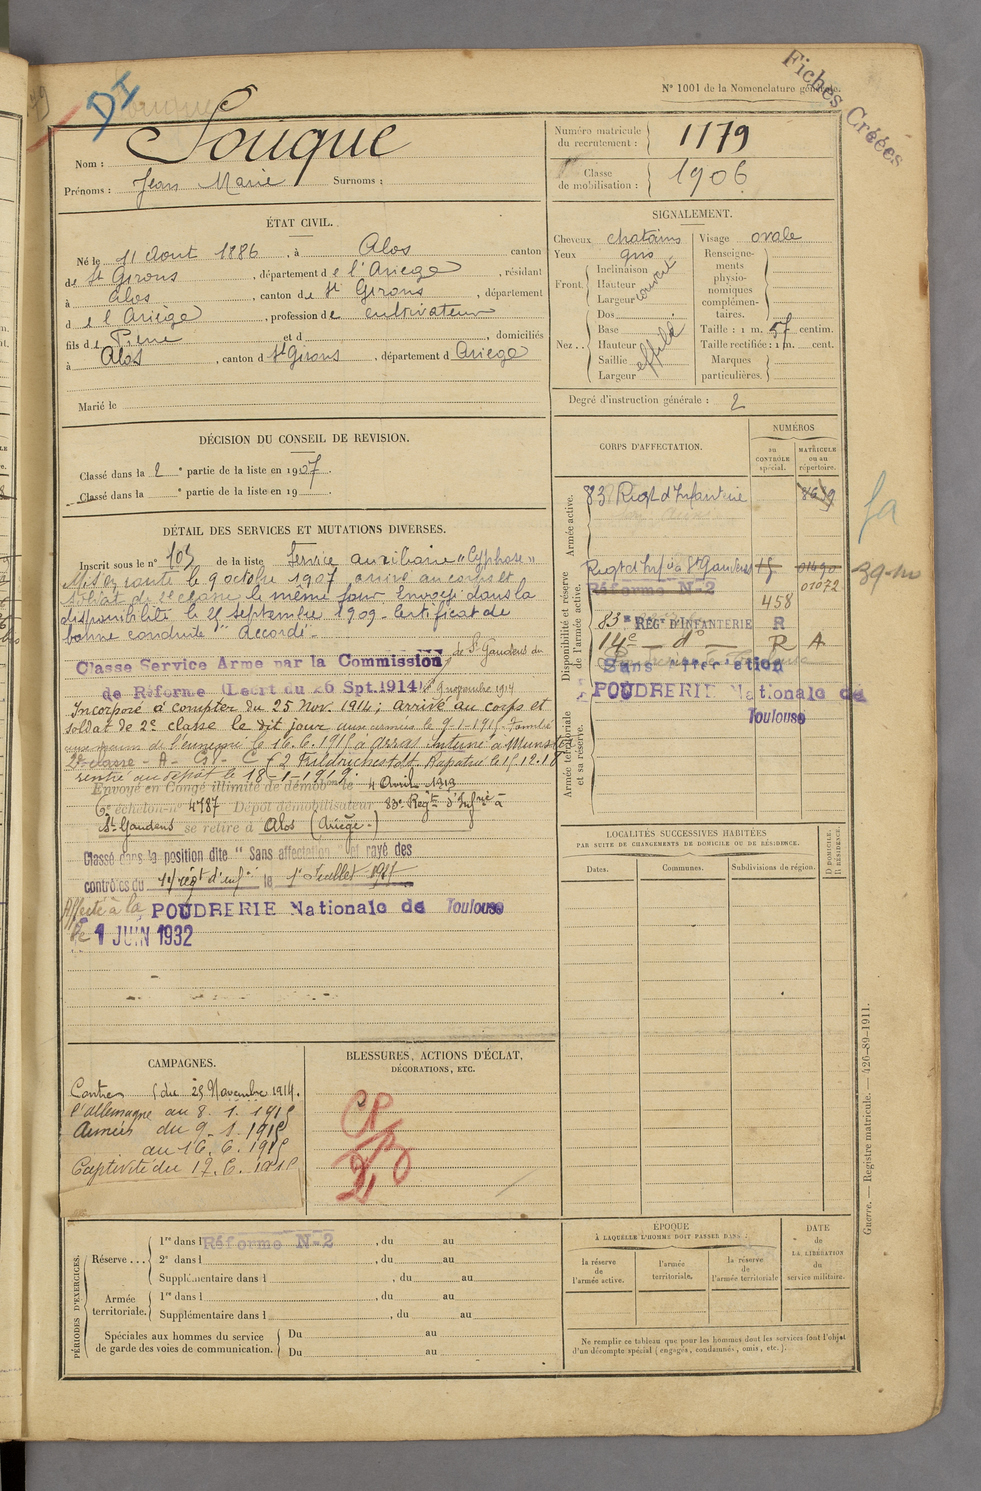 DI
Fiches Créées
N° 1001 de la Nomenclature générale.
Nom : Souque
Prénoms : Jean Marie Surnoms :
Numéro matricule du recrutement : 1179
Classe de mobilisation : 1906
ÉTAT CIVIL.
Né le 11 Aout 1886, à Alos canton
de St Girons, département de l'Ariège, résidant
à Alos, canton de St Girons, département
de l'Ariège, profession de cultivateur
fils de Pierre et d domiciliés
à Alos, canton d St Girons, département d Ariège
Marié le
SIGNALEMENT.
Cheveux chatains Visage ovale
Yeux gris
Front Inclinaison Hauteur Largeur couvert
Nez Dos Base Hauteur Saillie Largeur effilé
Renseignements physionomiques complémentaires.
Taille : 1 m. 57 centim.
Taille rectifiée : 1 m. cent.
Marques particulières.
Degré d'instruction générale : 2
DÉCISION DU CONSEIL DE REVISION.
Classé dans la 2e partie de la liste en 1907.
Classé dans la e partie de la liste en 19 .
DÉTAIL DES SERVICES ET MUTATIONS DIVERSES.
Inscrit sous le n° 103 de la liste Service auxiliaire "Cyphose"
Mis en route le 9 octobre 1907 arrivé au corps et
soldat de 2e classe le même jour Envoyé dans la
disponibilité le 25 septembre 1909 Certificat de
bonne conduite "Accordé"
Classé Service Armé par la Commission de St Gaudens du
de Réforme (Décrt du 26 Spt.1914) 9 novembre 1914
Incorporé à compter du 25 Nov. 1914; arrivé au corps et
soldat de 2e classe le dit jour aux armées le 9-1-1915. Tombé
aux mains de l'ennemi le 16.6.1915 à Arras Interné à Munster
rentré au dépôt le 18-1-1919.
Envoyé en Congé illimité de démobon le 4 Avril 1919
6e échelon n° 4787 Dépôt démobilisateur 83e Regt d'Infrie à
St Gaudens se retire à Alos (Ariège.)
Classé dans la position dite "Sans affectation" et rayé des
contrôles du régt d'inf. le 1er Juillet
Affecté à la POUDRERIE Nationale de Toulouse
le 1 JUIN 1932
CORPS D'AFFECTATION.
NUMÉROS
au CONTRÔLE spécial.
MATRICULE ou au répertoire.
Armée active.
83 Regt d'Infanterie 8639
Disponibilité et réserve de l'armée active.
Regt d'Inf à St Gaudens 15 01490
Réforme N-2 01072
458
83e RÉGt D'INFANTERIE R
14e — do — R A
Sans affectation
POUDRERIE Nationale de
Toulouse
Armée territoriale et sa réserve.
39-
LOCALITÉS SUCCESSIVES HABITÉES
PAR SUITE DE CHANGEMENTS DE DOMICILE OU DE RÉSIDENCE.
Dates. Communes. Subdivisions de région. D DOMICILE. R RÉSIDENCE.
CAMPAGNES.
Contre du 25 Novembre 1914.
l'Allemagne au 8. 1. 1915
Armées du 9-1-1915
au 16. 6. 1915
Captivité du 17. 6. 1915
BLESSURES, ACTIONS D'ÉCLAT,
DÉCORATIONS, ETC.
PÉRIODES D'EXERCICES.
Réserve... 1re dans l Réforme N-2, du au
2e dans l, du au
Supplémentaire dans l, du au
Armée territoriale. 1re dans l, du au
Supplémentaire dans l, du au
Spéciales aux hommes du service Du au
de garde des voies de communication. Du au
ÉPOQUE
À LAQUELLE L'HOMME DOIT PASSER DANS :
la réserve de l'armée active.
l'armée territoriale.
la réserve de l'armée territoriale
DATE de LA LIBÉRATION du service militaire.
Ne remplir ce tableau que pour les hommes dont les services font l'objet
d'un décompte spécial (engagés, condamnés, omis, etc.).
Guerre. — Registre matricule. — 426-89-1911.